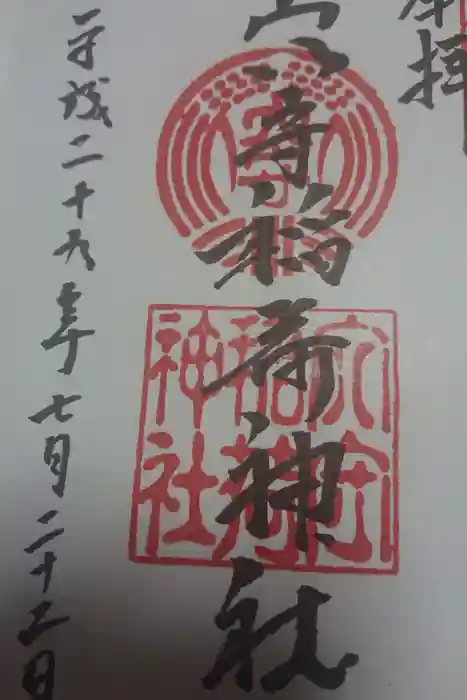 奉拝
穴守稲荷神社
平成二十九年七月二十二日
穴守
稲荷
神社